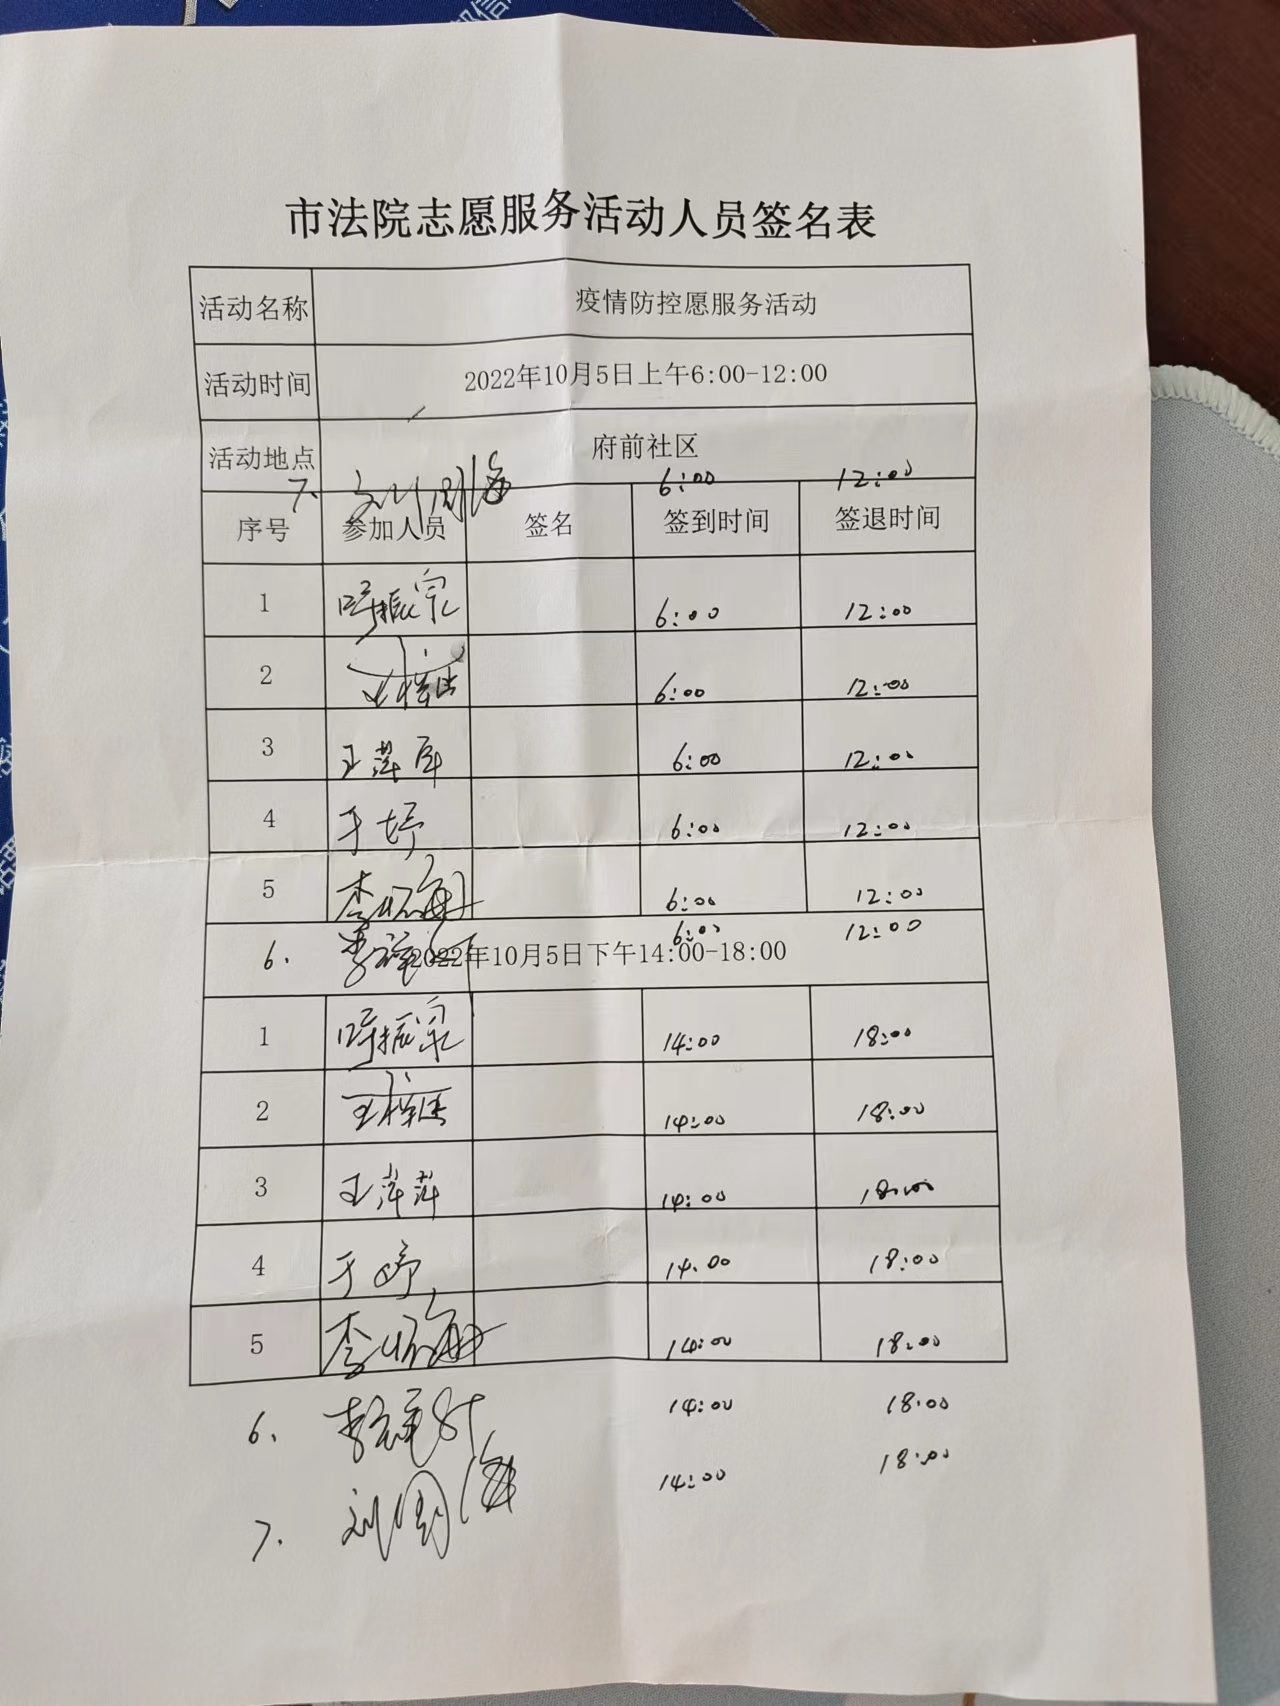 市法院志愿服务活动人员签名表
活动名称 疫情防控愿服务活动
活动时间 2022年10月5日上午6:00-12:00
活动地点 府前社区
7、 刘国海 6:00 12:00
序号 参加人员 签名 签到时间 签退时间
1 振宗 6:00 12:00
2 6:00 12:00
3 王萍 6:00 12:00
4 于婷 6:00 12:00
5 李 6:00 12:00
6. 李 6:00 12:00
2022年10月5日下午14:00-18:00
1 振宗 14:00 18:00
2 王 14:00 18:00
3 王萍萍 14:00 18:00
4 于婷 14:00 18:00
5 李 14:00 18:00
6、 李 14:00 18:00
7. 刘国海 14:00 18:00